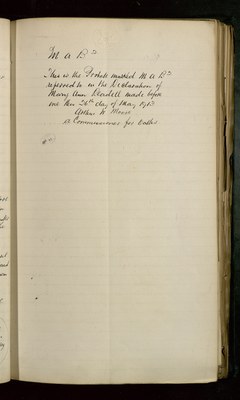 M a B
This is the Probate marked M a B
referred to in the Declaration of
Mary Ann made before
me this 26th day of May 1913
Arthur W
A Commissioner for Oaths